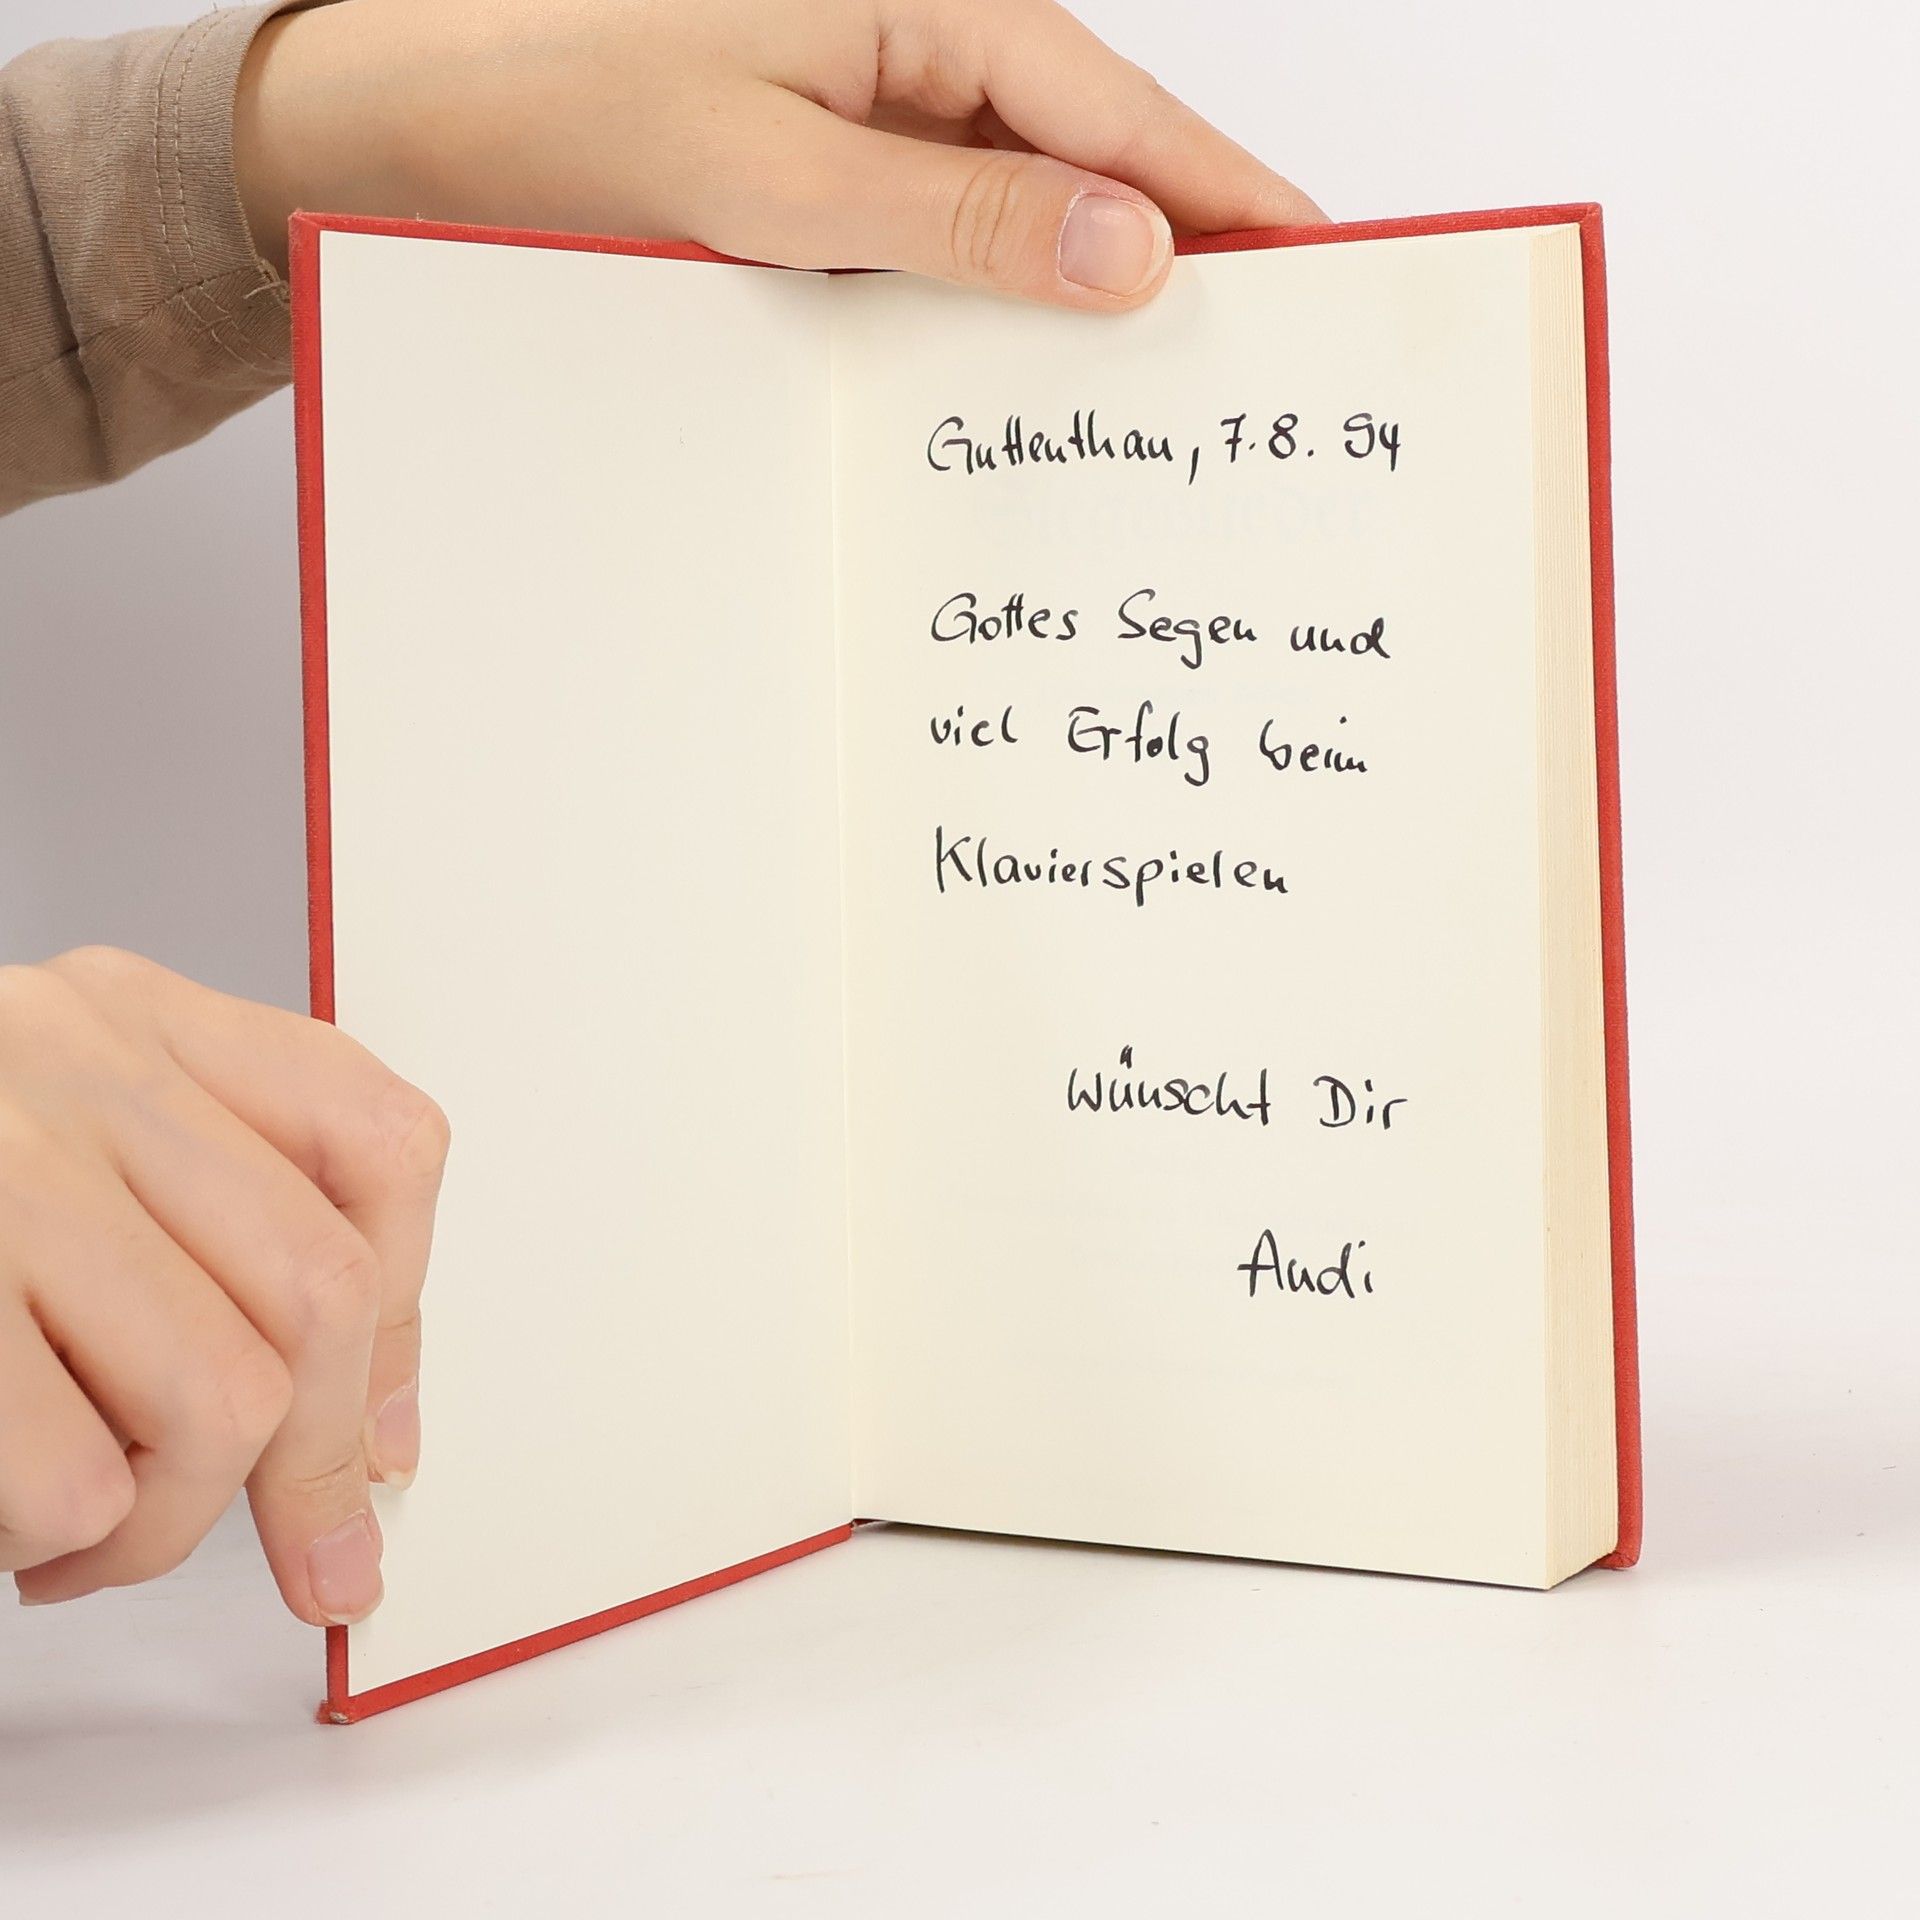 Guttenthau, 7.8.94
Gottes Segen und
viel Erfolg beim
Klavierspielen
wünscht Dir
Andi